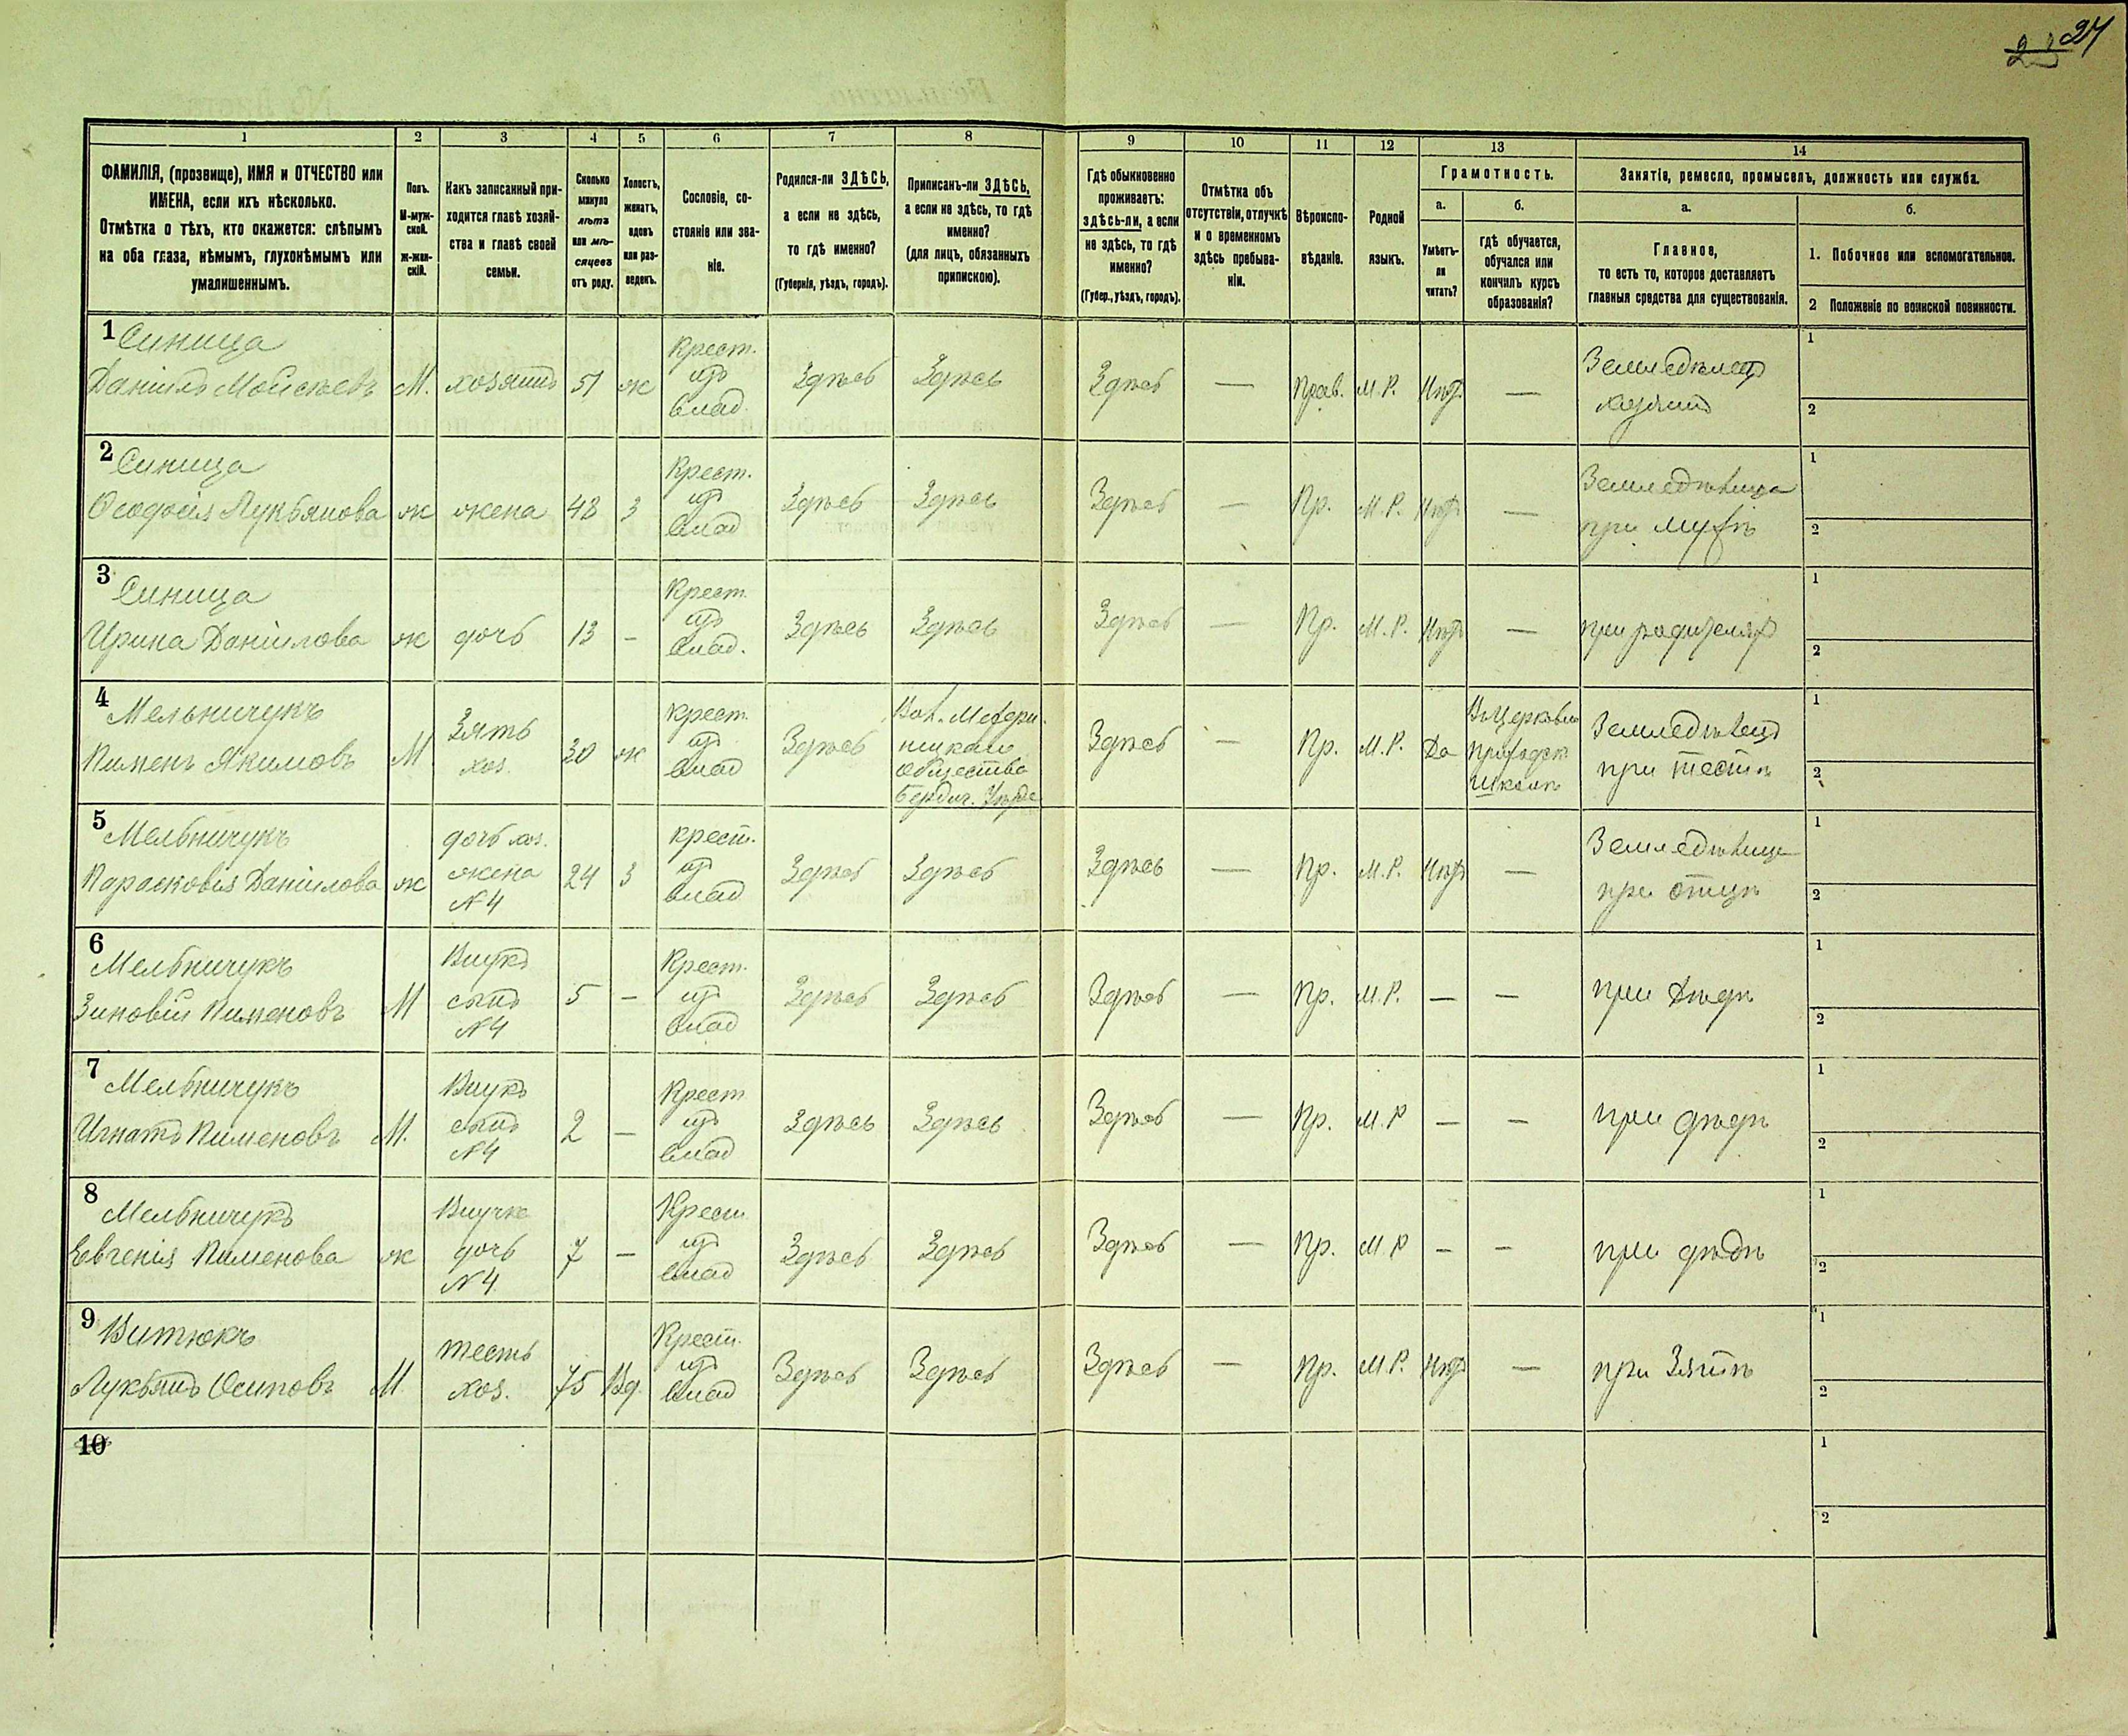 23 24
1 2 3 4 5 6 7 8 9 10 11 12 13 14
ФАМИЛІЯ, (прозвище), ИМЯ и ОТЧЕСТВО или
ИМЕНА, если ихъ нѣсколько.
Отмѣтка о тѣхъ, кто окажется: слѣпымъ
на оба глаза, нѣмымъ, глухонѣмымъ или
умалишеннымъ.
Полъ.
М-муж-
ской.
Ж-жен-
скій.
Какъ записанный при-
ходится главѣ хозяй-
ства и главѣ своей
семьи.
Сколько
минуло
лѣтъ
или мѣ-
сяцевъ
отъ роду.
Холостъ,
женатъ,
вдовъ
или раз-
веденъ.
Сословіе, со-
стояніе или зва-
ніе.
Родился-ли ЗДѢСЬ,
а если не здѣсь,
то гдѣ именно?
(Губернія, уѣздъ, городъ).
Приписанъ-ли ЗДѢСЬ,
а если не здѣсь, то гдѣ
именно?
(для лицъ, обязанныхъ
припискою).
Гдѣ обыкновенно
проживаетъ:
здѣсь-ли, а если
не здѣсь, то гдѣ
именно?
(Губер., уѣздъ, городъ).
Отмѣтка объ
отсутствіи, отлучкѣ
и о временномъ
здѣсь пребыва-
ніи.
Вѣроиспо-
вѣданіе.
Родной
языкъ.
Грамотность.
а.
Умѣетъ-
ли
читать?
б.
гдѣ обучается,
обучался или
кончилъ курсъ
образованія?
Занятіе, ремесло, промыселъ, должность или служба.
а.
Главное,
то есть то, которое доставляетъ
главныя средства для существованія.
б.
1. Побочное или вспомогательное.
2 Положеніе по воинской повинности.
1 Синица
Даніилъ Мойсѣевъ М. хозяинъ 51 ж Крест. изъ влад. Здѣсь Здѣсь Здѣсь — Прав. М.Р. Нѣтъ — Земледѣлецъ хозяинъ 1 2
2 Синица
Ѳеодосія Лукьянова ж жена 48 З Крест. изъ влад Здѣсь Здѣсь Здѣсь — Пр. М.Р. Нѣтъ — Земледѣлица при мужѣ 1 2
3 Синица
Ирина Даніилова ж дочь 13 — Крест изъ влад. Здѣсь Здѣсь Здѣсь — Пр. М.Р. Нѣтъ — при родителяхъ 1 2
4 Мельничукъ
Пименъ Якимовъ М Зять хоз. 30 ж крест. изъ влад Здѣсь общества Бердич. Уѣзда Здѣсь — Пр. М.Р. Да ВъЦерковно Приходск. Школѣ Земледѣлецъ при тестѣ 1 2
5 Мельничукъ
Парасковія Даніилова ж дочь хоз. жена N4 24 З крест. изъ влад Здѣсь Здѣсь Здѣсь — Пр. М.Р. Нѣтъ — Земледѣлица при отцѣ 1 2
6 Мельничукъ
Зиновій Пименовъ М Внукъ сынъ N4 5 — Крест. изъ влад Здѣсь Здѣсь Здѣсь — Пр. М.Р. — — при Дѣдѣ 1 2
7 Мельничукъ
Игнатъ Пименовъ М. Внукъ сынъ N4 2 — Крест изъ влад Здѣсь Здѣсь Здѣсь — Пр. М.Р — — при дѣдѣ 1 2
8 Мельничукъ
Евгенія Пименова ж Внучка дочь N4 7 — Крест изъ влад Здѣсь Здѣсь Здѣсь — Пр. М.Р — — при дѣдѣ 1 2
9 Витюкъ
Лукьянъ Осиповъ М. тесть хоз. 75 Вд. Крест. изъ влад Здѣсь Здѣсь Здѣсь — Пр. М.Р. Нѣтъ — при Зятѣ 1 2
10 1 2